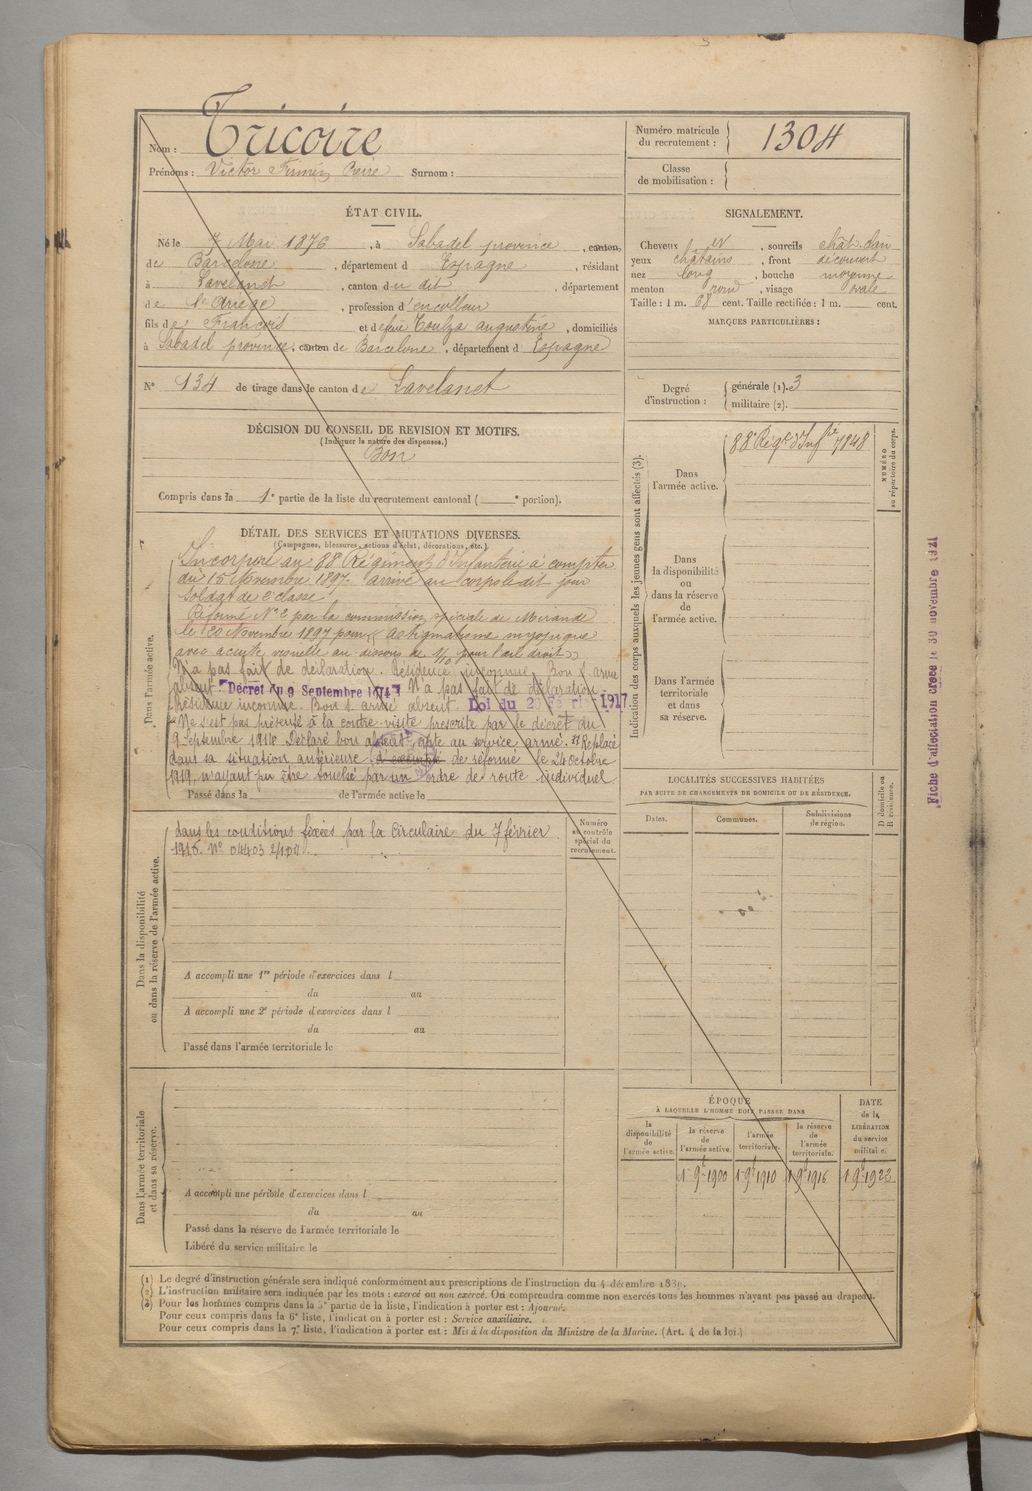 Nom : Tricoire
Prénoms : Victor Firmin Surnom :
Numéro matricule du recrutement : 1304
Classe de mobilisation :
ÉTAT CIVIL.
Né le 7 Mai 1876, à Sabadel province, canton
de Barcelone, département d Espagne, résidant
à Lavelanet, canton du dit, département
de l'Ariège, profession d'encolleur
fils de François et de feue Toulza augustine, domiciliés
à Sabadel province, canton de Barcelone, département d Espagne
N° 134 de tirage dans le canton de Lavelanet
SIGNALEMENT.
Cheveux et, sourcils chât. clair
yeux châtains, front découvert
nez long, bouche moyenne
menton rond, visage ovale
Taille : 1 m. 68 cent. Taille rectifiée : 1 m. cent.
MARQUES PARTICULIÈRES :
Degré d'instruction : générale (1). 3
militaire (2).
DÉCISION DU CONSEIL DE REVISION ET MOTIFS.
(Indiquer la nature des dispenses.)
Bon
Compris dans la 1e partie de la liste du recrutement cantonal ( e portion).
DÉTAIL DES SERVICES ET MUTATIONS DIVERSES.
(Campagnes, blessures, actions d'éclat, décorations, etc.)
Dans l'armée active.
Incorporé au 88 Régiment d'Infanterie à compter
du 15 Novembre 1897. arrivé au corps le dit jour
Soldat de 2e classe
Réformé N° 2 par la commission spéciale de Mirande
le 20 Novembre 1897 pour « astigmatisme myopique
avec acuité visuelle au dessous de 1/10 pour l'œil droit »
N'a pas fait de déclaration. Résidence inconnue. Bon s. armé
absent "Décret du 9 Septembre 1914" N'a pas fait de déclaration.
Résidence inconnue. Bon s. armé absent. Loi du 20 Février 1917.
Ne s'est pas présenté à la contre visite prescrite par le décret du
9 Septembre 1914 Déclaré bon absent, apte au service armé. Replacé
dans sa situation antérieure d'exempté de réformé le 24 Octobre
1919, n'ayant pu être touché par un ordre de route individuel
Passé dans la de l'armée active le
Dans la disponibilité ou dans la réserve de l'armée active.
dans les conditions fixées par la circulaire du 7 février
1918. N° 04403 2/10
Numéro au contrôle spécial du recrutement.
A accompli une 1re période d'exercices dans l
du au
A accompli une 2e période d'exercices dans l
du au
Passé dans l'armée territoriale le
Dans l'armée territoriale et dans sa réserve.
A accompli une période d'exercices dans l
du au
Passé dans la réserve de l'armée territoriale le
Libéré du service militaire le
Indication des corps auxquels les jeunes gens sont affectés (3).
Dans l'armée active.
88e Régt d'Infrie 7848
NUMÉRO au répertoire du corps.
Dans la disponibilité ou dans la réserve de l'armée active.
Dans l'armée territoriale et dans sa réserve.
LOCALITÉS SUCCESSIVES HABITÉES
PAR SUITE DE CHANGEMENTS DE DOMICILE OU DE RÉSIDENCE.
Dates. Communes. Subdivisions de région. D domicile ou R résidence.
ÉPOQUE
À LAQUELLE L'HOMME DOIT PASSER DANS
la disponibilité de l'armée active. la réserve de l'armée active. l'armée territoriale. la réserve de l'armée territoriale.
DATE de la LIBÉRATION du service militaire.
1 9t 1900 1 9t 1910 1 9t 1916 1 9t 1923
Fiche d'affectation créée le 30 novembre 1921
(1) Le degré d'instruction générale sera indiqué conformément aux prescriptions de l'instruction du 4 décembre 1889.
(2) L'instruction militaire sera indiquée par les mots : exercé ou non exercé. On comprendra comme non exercés tous les hommes n'ayant pas passé au drapeau.
(3) Pour les hommes compris dans la 5e partie de la liste, l'indication à porter est : Ajourné.
Pour ceux compris dans la 6e liste, l'indication à porter est : Service auxiliaire.
Pour ceux compris dans la 7e liste, l'indication à porter est : Mis à la disposition du Ministre de la Marine. (Art. 4 de la loi.)